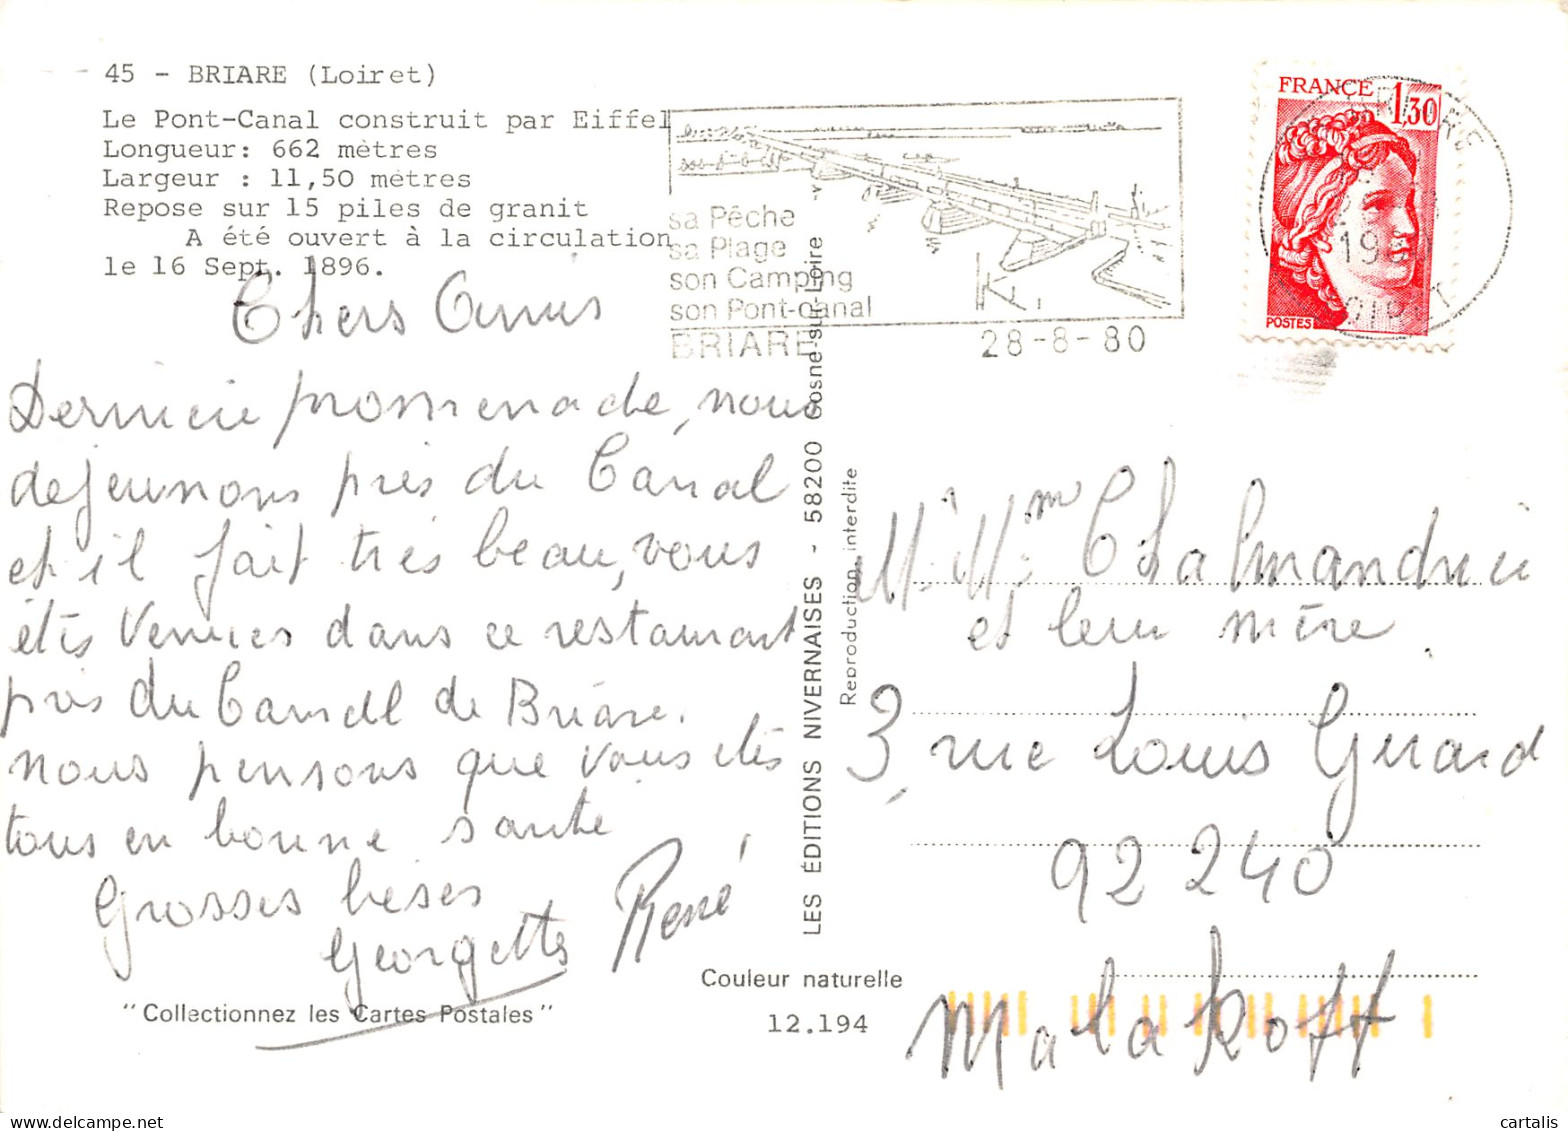 45 - BRIARE (Loiret)
Le Pont-Canal construit par Eiffel
Longueur: 662 mètres
Largeur : 11,50 mètres
Repose sur 15 piles de granit
A été ouvert à la circulation
le 16 Sept. 1896.
sa Pêche
sa Plage
son Camping
son Pont-canal
BRIARE
28-8-80
FRANCE 1,30
POSTES
Chers Amis
Dernière promenade, nous
dejeunons près du Canal
et il fait très beau, vous
étés venues dans ce restaurant
près du Canal de Briare.
nous pensons que vous etes
tous en bonne santé
Grosses bises
Georgette René
"Collectionnez les Cartes Postales"
LES ÉDITIONS NIVERNAISES - 58200 Cosne-sur-Loire
Reproduction interdite
Couleur naturelle
12.194
et leur mère.
3, rue Louis Girard
92240
Malakoff
cartalis
www.delcampe.net